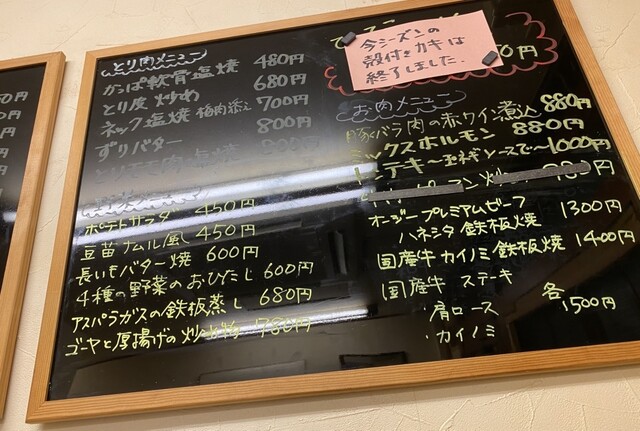 とり肉メニュー
かっぱ軟骨塩焼 480円
とり皮炒め 680円
ネック塩焼 梅肉添え 700円
ずりバター 800円
800円
ポテトサラダ 450円
豆苗ナムル風 450円
長いもバター焼 600円
4種の野菜のおひたし 600円
アスパラガスの鉄板蒸し 680円
ゴーヤと厚揚げの炒め物 780円
今シーズンの
殻付きカキは
終了しました.
0円
お肉メニュー
豚バラ肉の赤ワイン煮込 880円
ミックスホルモン 880円
トンテキ〜玉ネギソースで〜 1000円
オージープレミアムビーフ
ハネシタ鉄板焼 1300円
国産牛カイノミ鉄板焼 1400円
国産牛ステーキ
・肩ロース 各
・カイノミ 1500円